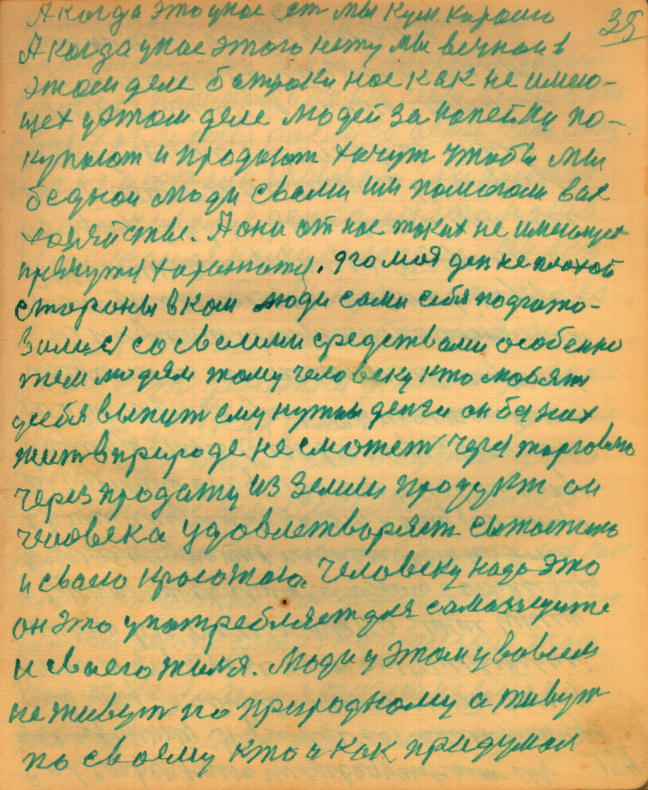 35
А когда это у нас ест мы кум хорошо
А когда у нас этого нету мы вечнои в
этом деле батраки нас как не имею-
щех у этом деле людей за копейку по-
купают и продают хочут чтобы мы
беднои люди свами им помогали в их
хозяйстве. А они от нас таких не имеющех
. эго моя ден не плохой
стороны в ком люди сами себя подгото-
вили со своими средствами особенно
тем людям тому человеку кто любят
у себя выпит ему нужны денги он без них
жит в природе не сможет через торговлю
через продажу из земли продукт он
человека удовлетворяет сытостью
и свею красотою. Человеку надо это
он это употребляет для самозащите
и своего тиля. Люди у этом у вовсем
не живут по природному а живут
по своему кто и как придумал